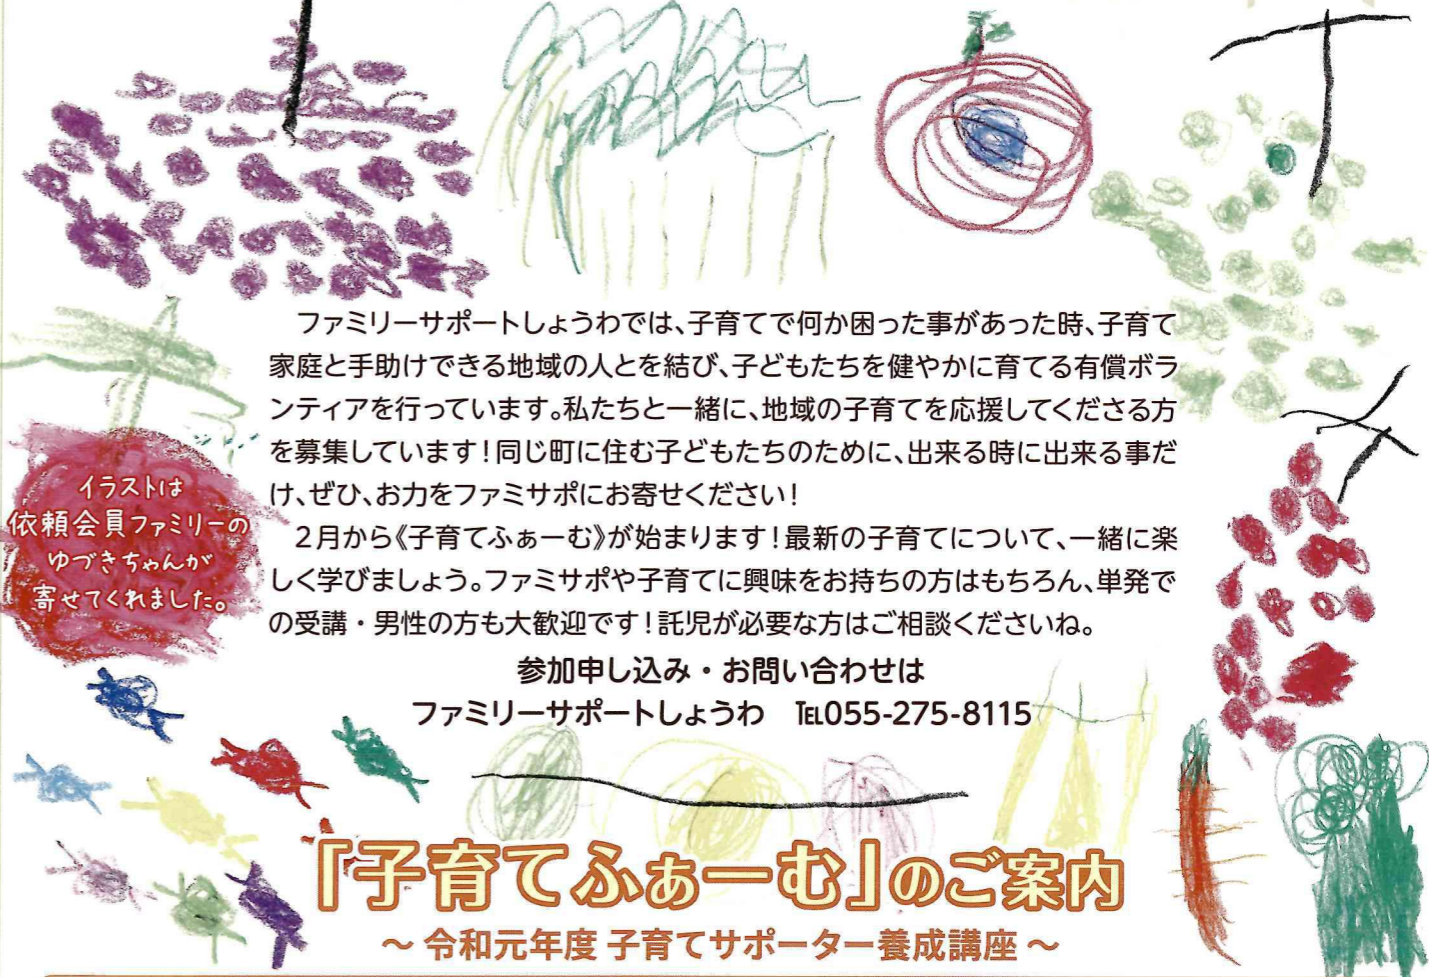 ファミリーサポートしょうわでは、子育てで何か困った事があった時、子育て
家庭と手助けできる地域の人とを結び、子どもたちを健やかに育てる有償ボラ
ンティアを行っています。私たちと一緒に、地域の子育てを応援してくださる方
を募集しています！同じ町に住む子どもたちのために、出来る時に出来る事だ
け、ぜひ、お力をファミサポにお寄せください！
２月から《子育てふぁーむ》が始まります！最新の子育てについて、一緒に楽
しく学びましょう。ファミサポや子育てに興味をお持ちの方はもちろん、単発で
の受講・男性の方も大歓迎です！託児が必要な方はご相談くださいね。
イラストは
依頼会員ファミリーの
ゆづきちゃんが
寄せてくれました。
参加申し込み・お問い合わせは
ファミリーサポートしょうわ　℡055-275-8115
「子育てふぁーむ」のご案内
～ 令和元年度 子育てサポーター養成講座 ～